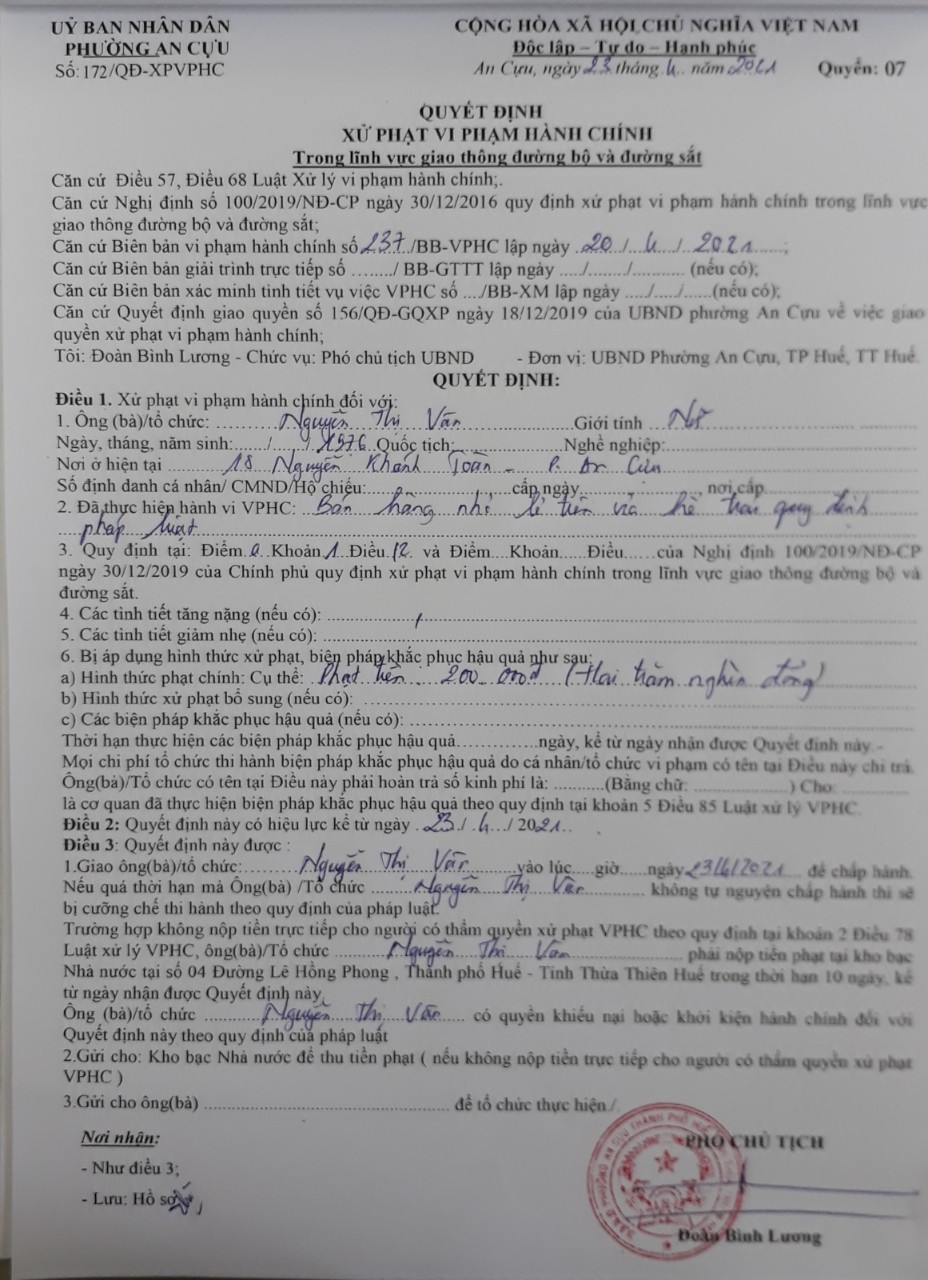 UỶ BAN NHÂN DÂN
PHƯỜNG AN CỰU
Số: 172/QĐ-XPVPHC
CỘNG HÒA XÃ HỘI CHỦ NGHĨA VIỆT NAM
Độc lập – Tự do – Hạnh phúc
An Cựu, ngày 23 tháng 4 năm 2021 Quyển: 07
QUYẾT ĐỊNH
XỬ PHẠT VI PHẠM HÀNH CHÍNH
Trong lĩnh vực giao thông đường bộ và đường sắt
Căn cứ Điều 57, Điều 68 Luật Xử lý vi phạm hành chính;.
Căn cứ Nghị định số 100/2019/NĐ-CP ngày 30/12/2016 quy định xử phạt vi phạm hành chính trong lĩnh vực
giao thông đường bộ và đường sắt;
Căn cứ Biên bản vi phạm hành chính số 237/BB-VPHC lập ngày 20/4/2021;
Căn cứ Biên bản giải trình trực tiếp số ......../ BB-GTTT lập ngày ..../......../.......... (nếu có);
Căn cứ Biên bản xác minh tình tiết vụ việc VPHC số ..../BB-XM lập ngày ...../...../......(nếu có);
Căn cứ Quyết định giao quyền số 156/QĐ-GQXP ngày 18/12/2019 của UBND phường An Cựu về việc giao
quyền xử phạt vi phạm hành chính;
Tôi: Đoàn Bình Lương - Chức vụ: Phó chủ tịch UBND - Đơn vị: UBND Phường An Cựu, TP Huế, TT Huế.
QUYẾT ĐỊNH:
Điều 1. Xử phạt vi phạm hành chính đối với:
1. Ông (bà)/tổ chức: Nguyễn Thị Vân Giới tính Nữ
Ngày, tháng, năm sinh:....../....../1976 Quốc tịch:............Nghề nghiệp:............
Nơi ở hiện tại 18 Nguyễn Khánh Toàn - P. An Cựu
Số định danh cá nhân/ CMND/Hộ chiếu:............cấp ngày............, nơi cấp............
2. Đã thực hiện hành vi VPHC: Bán hàng nhỏ lẻ trên vỉa hè trái quy định
pháp luật
3. Quy định tại: Điểm a Khoản 1 Điều 12 và Điểm....Khoản.....Điều......của Nghị định 100/2019/NĐ-CP
ngày 30/12/2019 của Chính phủ quy định xử phạt vi phạm hành chính trong lĩnh vực giao thông đường bộ và
đường sắt.
4. Các tình tiết tăng nặng (nếu có): ............
5. Các tình tiết giảm nhẹ (nếu có): ............
6. Bị áp dụng hình thức xử phạt, biện pháp khắc phục hậu quả như sau:
a) Hình thức phạt chính: Cụ thể: Phạt tiền 200.000đ (Hai trăm nghìn đồng)
b) Hình thức xử phạt bổ sung (nếu có): ............
c) Các biện pháp khắc phục hậu quả (nếu có): ............
Thời hạn thực hiện các biện pháp khắc phục hậu quả............ngày, kể từ ngày nhận được Quyết định này.-
Mọi chi phí tổ chức thi hành biện pháp khắc phục hậu quả do cá nhân/tổ chức vi phạm có tên tại Điều này chi trả.
Ông(bà)/Tổ chức có tên tại Điều này phải hoàn trả số kinh phí là: ..........(Bằng chữ: ............) Cho: ............
là cơ quan đã thực hiện biện pháp khắc phục hậu quả theo quy định tại khoản 5 Điều 85 Luật xử lý VPHC.
Điều 2: Quyết định này có hiệu lực kể từ ngày 23/4/2021
Điều 3: Quyết định này được :
1.Giao ông(bà)/tổ chức: Nguyễn Thị Vân vào lúc.....giờ......ngày 23/4/2021 để chấp hành.
Nếu quá thời hạn mà Ông(bà) /Tổ chức Nguyễn Thị Vân không tự nguyện chấp hành thì sẽ
bị cưỡng chế thi hành theo quy định của pháp luật.
Trường hợp không nộp tiền trực tiếp cho người có thẩm quyền xử phạt VPHC theo quy định tại khoản 2 Điều 78
Luật xử lý VPHC, ông(bà)/Tổ chức Nguyễn Thị Vân phải nộp tiền phạt tại kho bạc
Nhà nước tại số 04 Đường Lê Hồng Phong , Thành phố Huế - Tỉnh Thừa Thiên Huế trong thời hạn 10 ngày, kể
từ ngày nhận được Quyết định này.
Ông (bà)/tổ chức Nguyễn Thị Vân có quyền khiếu nại hoặc khởi kiện hành chính đối với
Quyết định này theo quy định của pháp luật
2.Gửi cho: Kho bạc Nhà nước để thu tiền phạt ( nếu không nộp tiền trực tiếp cho người có thẩm quyền xử phạt
VPHC )
3.Gửi cho ông(bà) ............ để tổ chức thực hiện./.
Nơi nhận:
- Như điều 3;
- Lưu: Hồ sơ
PHÓ CHỦ TỊCH
Đoàn Bình Lương